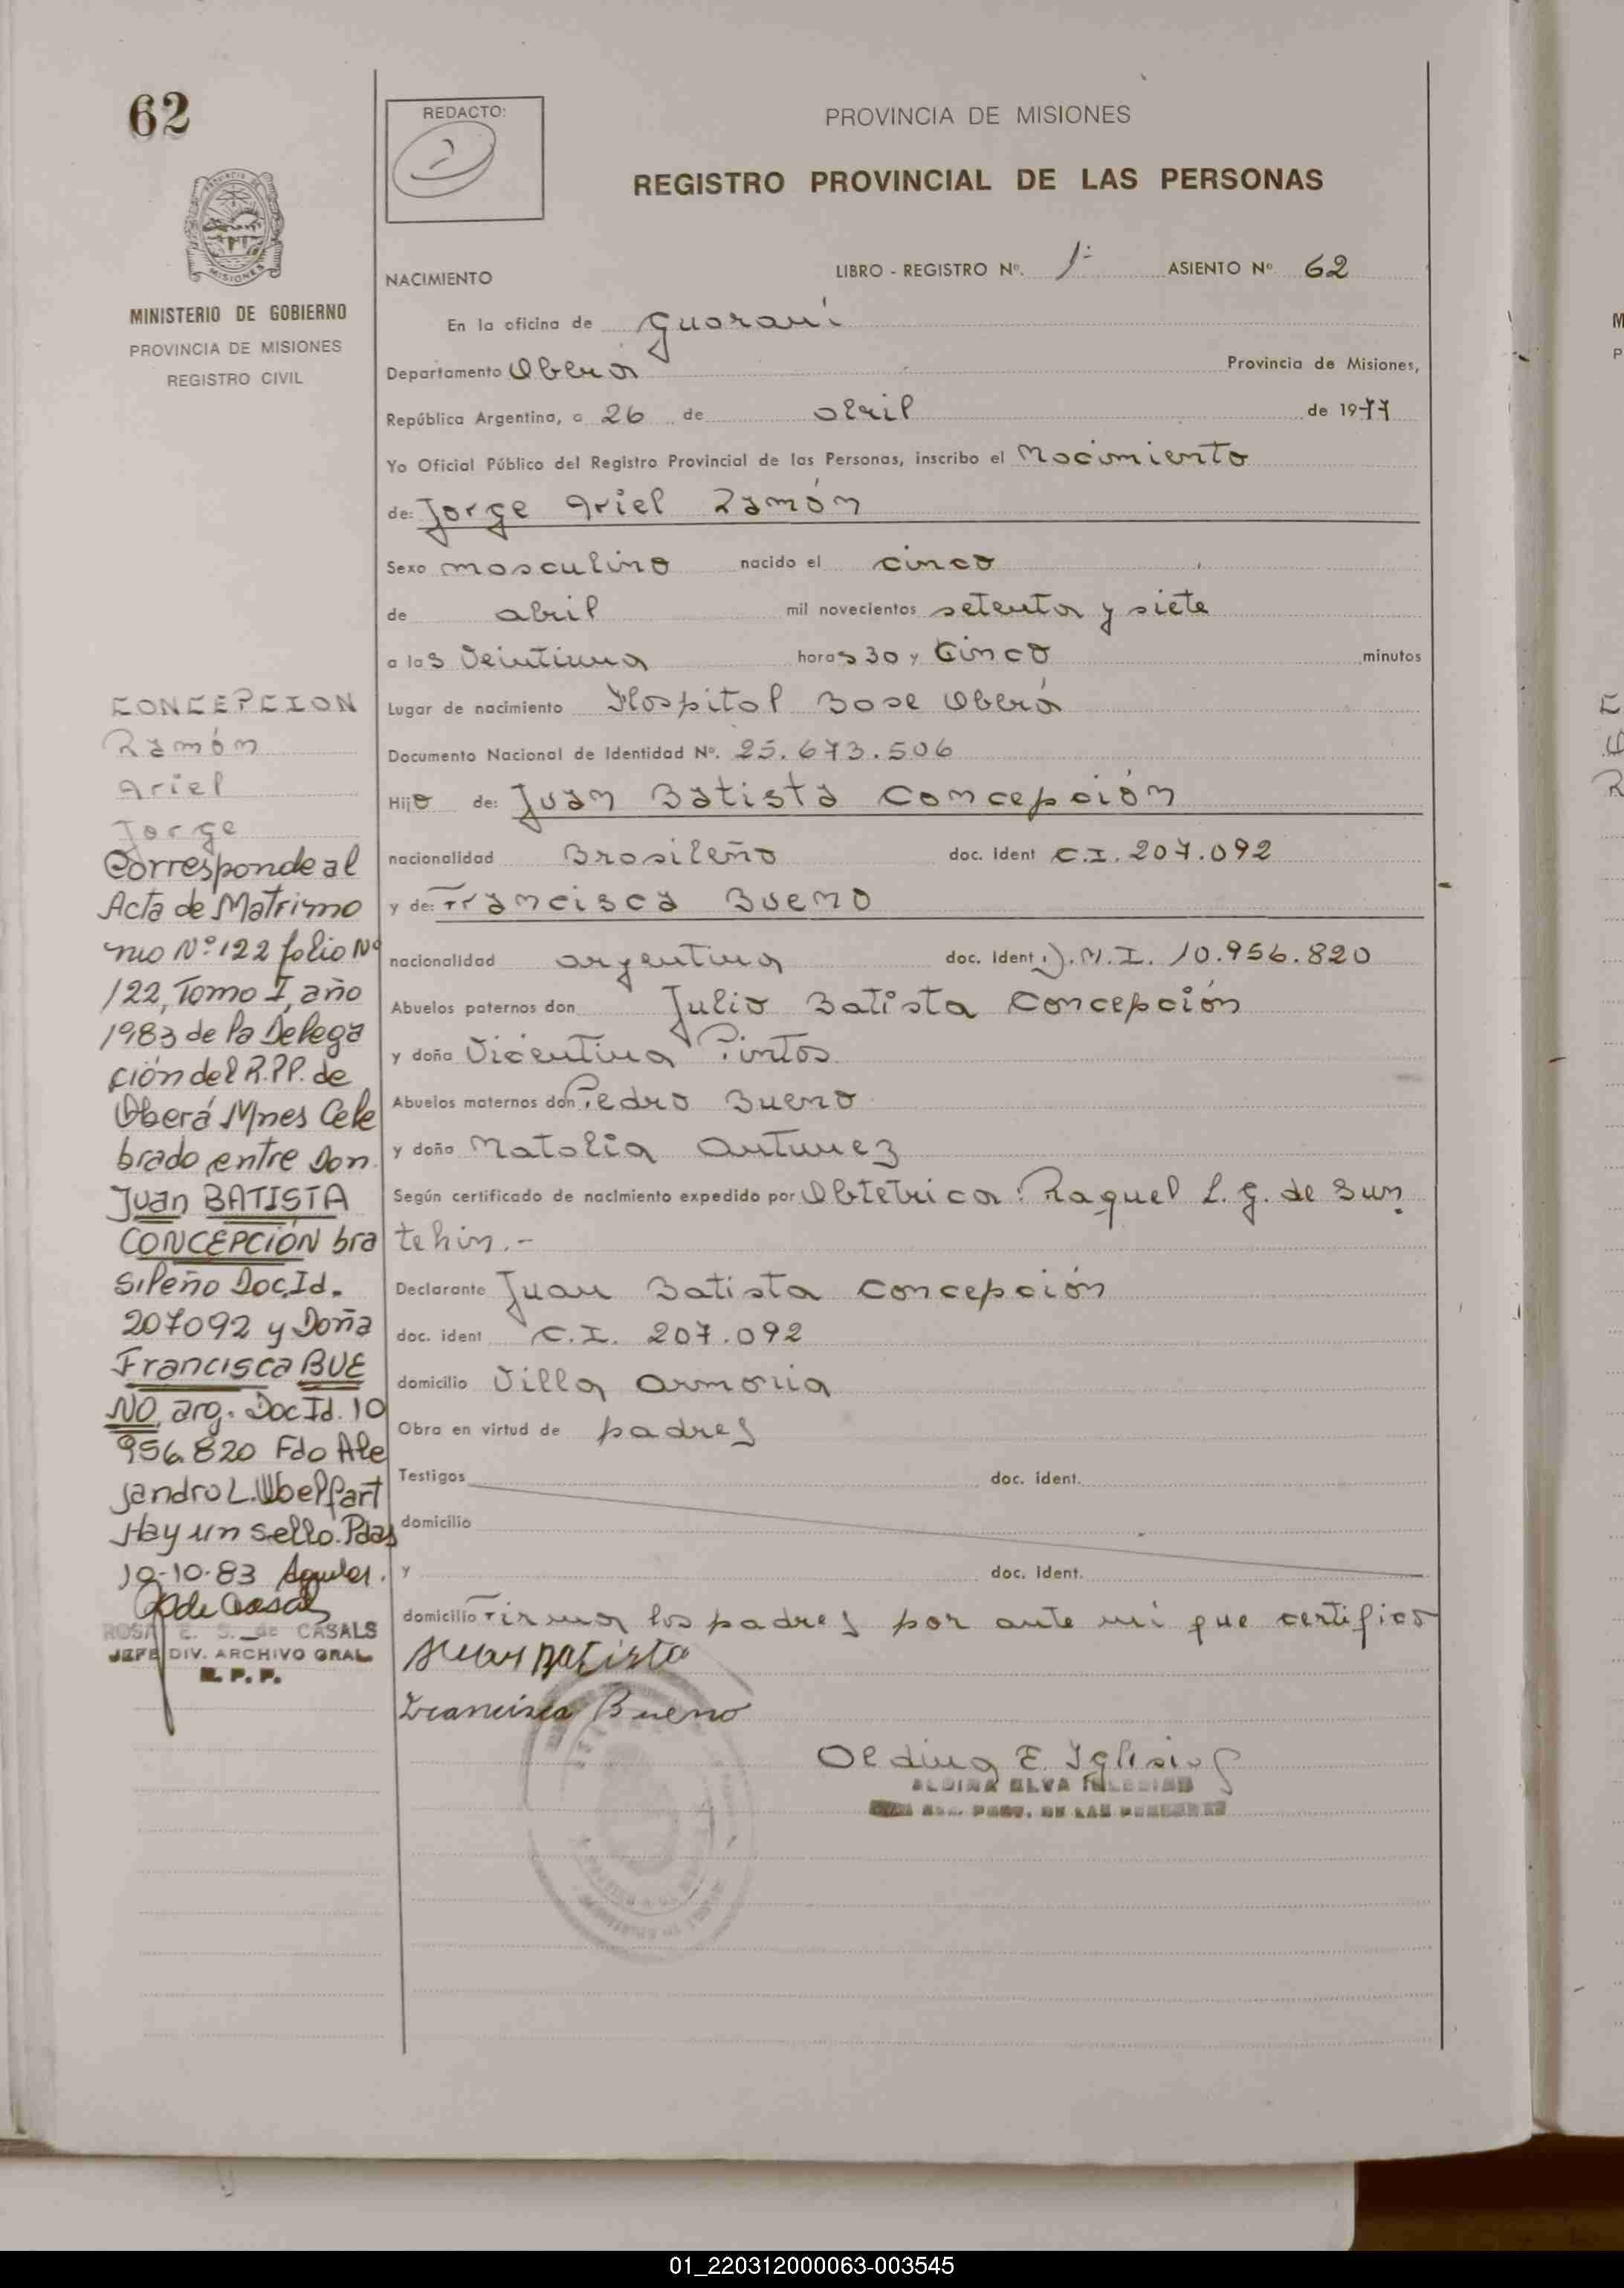 62
REDACTO:
PROVINCIA DE MISIONES
REGISTRO PROVINCIAL DE LAS PERSONAS
PROVINCIA DE
MISIONES
MINISTERIO DE GOBIERNO
PROVINCIA DE MISIONES
REGISTRO CIVIL
NACIMIENTO
LIBRO - REGISTRO Nº. 1º ASIENTO Nº 62
En la oficina de Guaraní
Departamento Oberá Provincia de Misiones,
República Argentina, a 26 de abril de 1977
Yo Oficial Público del Registro Provincial de las Personas, inscribo el Nacimiento
de: Jorge Ariel Ramón
Sexo masculino nacido el cinco
de abril mil novecientos setenta y siete
a las Veintiuna horas 30 y Cinco minutos
Lugar de nacimiento Hospital Base Oberá
Documento Nacional de Identidad Nº. 25.673.506
Hijo de: Juan Batista Concepción
nacionalidad Brasileño doc. ident C.I. 207.092
y de: Francisca Bueno
nacionalidad argentina doc. ident D.N.I. 10.956.820
Abuelos paternos don Julio Batista Concepción
y doña Vicentina Pintos
Abuelos maternos don Pedro Bueno
y doña Natalia Antunez
Según certificado de nacimiento expedido por Obtetrica: Raquel L. G. de Sun
tehin.-
Declarante Juan Batista Concepción
doc. ident C.I. 207.092
domicilio Villa Armonia
Obra en virtud de padres
Testigos doc. ident.
domicilio
y doc. ident.
domicilio Firman los padres por ante mi que certifico
Juan Batista
Francisca Bueno
Aldina E. Iglesias
ALDINA ELVA IGLESIAS
CONCEPCION
Ramón
Ariel
Jorge
Corresponde al
Acta de Matrimo
nio Nº 122 folio Nº
122, Tomo I, año
1983 de la Delega
ción del R.P.P. de
Oberá Mnes Cele
brado entre Don
Juan BATISTA
CONCEPCIÓN bra
sileño Doc.Id.
207092 y Doña
Francisca BUE
NO, arg. Doc Id. 10
956.820 Fdo Ale
jandro L. Woelfart
Hay un sello. Pdas
19-10-83
ROSA E. S. de CASALS
JEFE DIV. ARCHIVO GRAL
R. P. P.
01_220312000063-003545